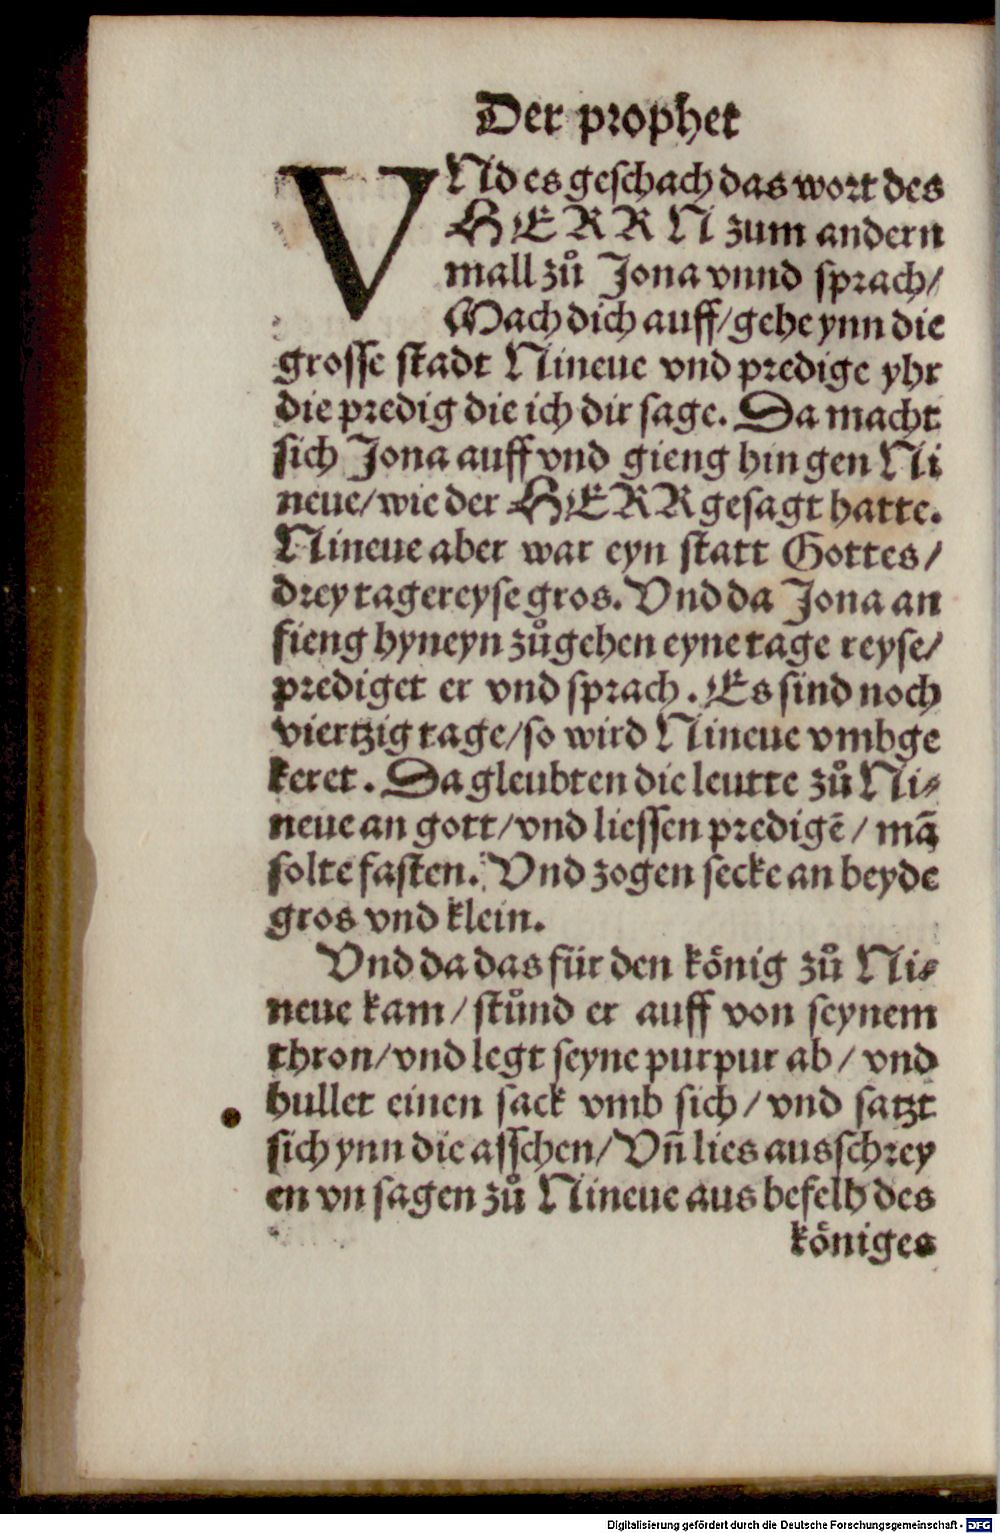 Der prophet
VNd es geschach das wort des
HERRN zum andern
mall zuͦ Jona vnnd sprach/
Mach dich auff/gehe ynn die
grosse stadt Nineue vnd predige yhr
die predig die ich dir sage. Da macht
sich Jona auff vnd gieng hin gen Ni
neue/wie der HERR gesagt hatte.
Nineue aber war eyn statt Gottes/
drey tagereyse gros. Vnd da Jona an
fieng hyneyn zuͦgehen eyne tage reyse/
prediget er vnd sprach. Es sind noch
viertzig tage/so wird Nineue vmbge
keret. Da gleubten die leutte zuͦ Ni⸗
neue an gott/vnd liessen predigē/ mā
solte fasten. Vnd zogen secke an beyde
gros vnd klein.
Vnd da das für den koͤnig zuͦ Ni⸗
neue kam/stuͦnd er auff von seynem
thron/vnd legt seyne purpur ab/ vnd
hullet einen sack vmb sich/vnd satzt
sich ynn die asschen/Vn̄ lies ausschrey
en vn sagen zuͦ Nineue aus befelh des
koͤniges
Digitalisierung gefördert durch die Deutsche Forschungsgemeinschaft - DFG